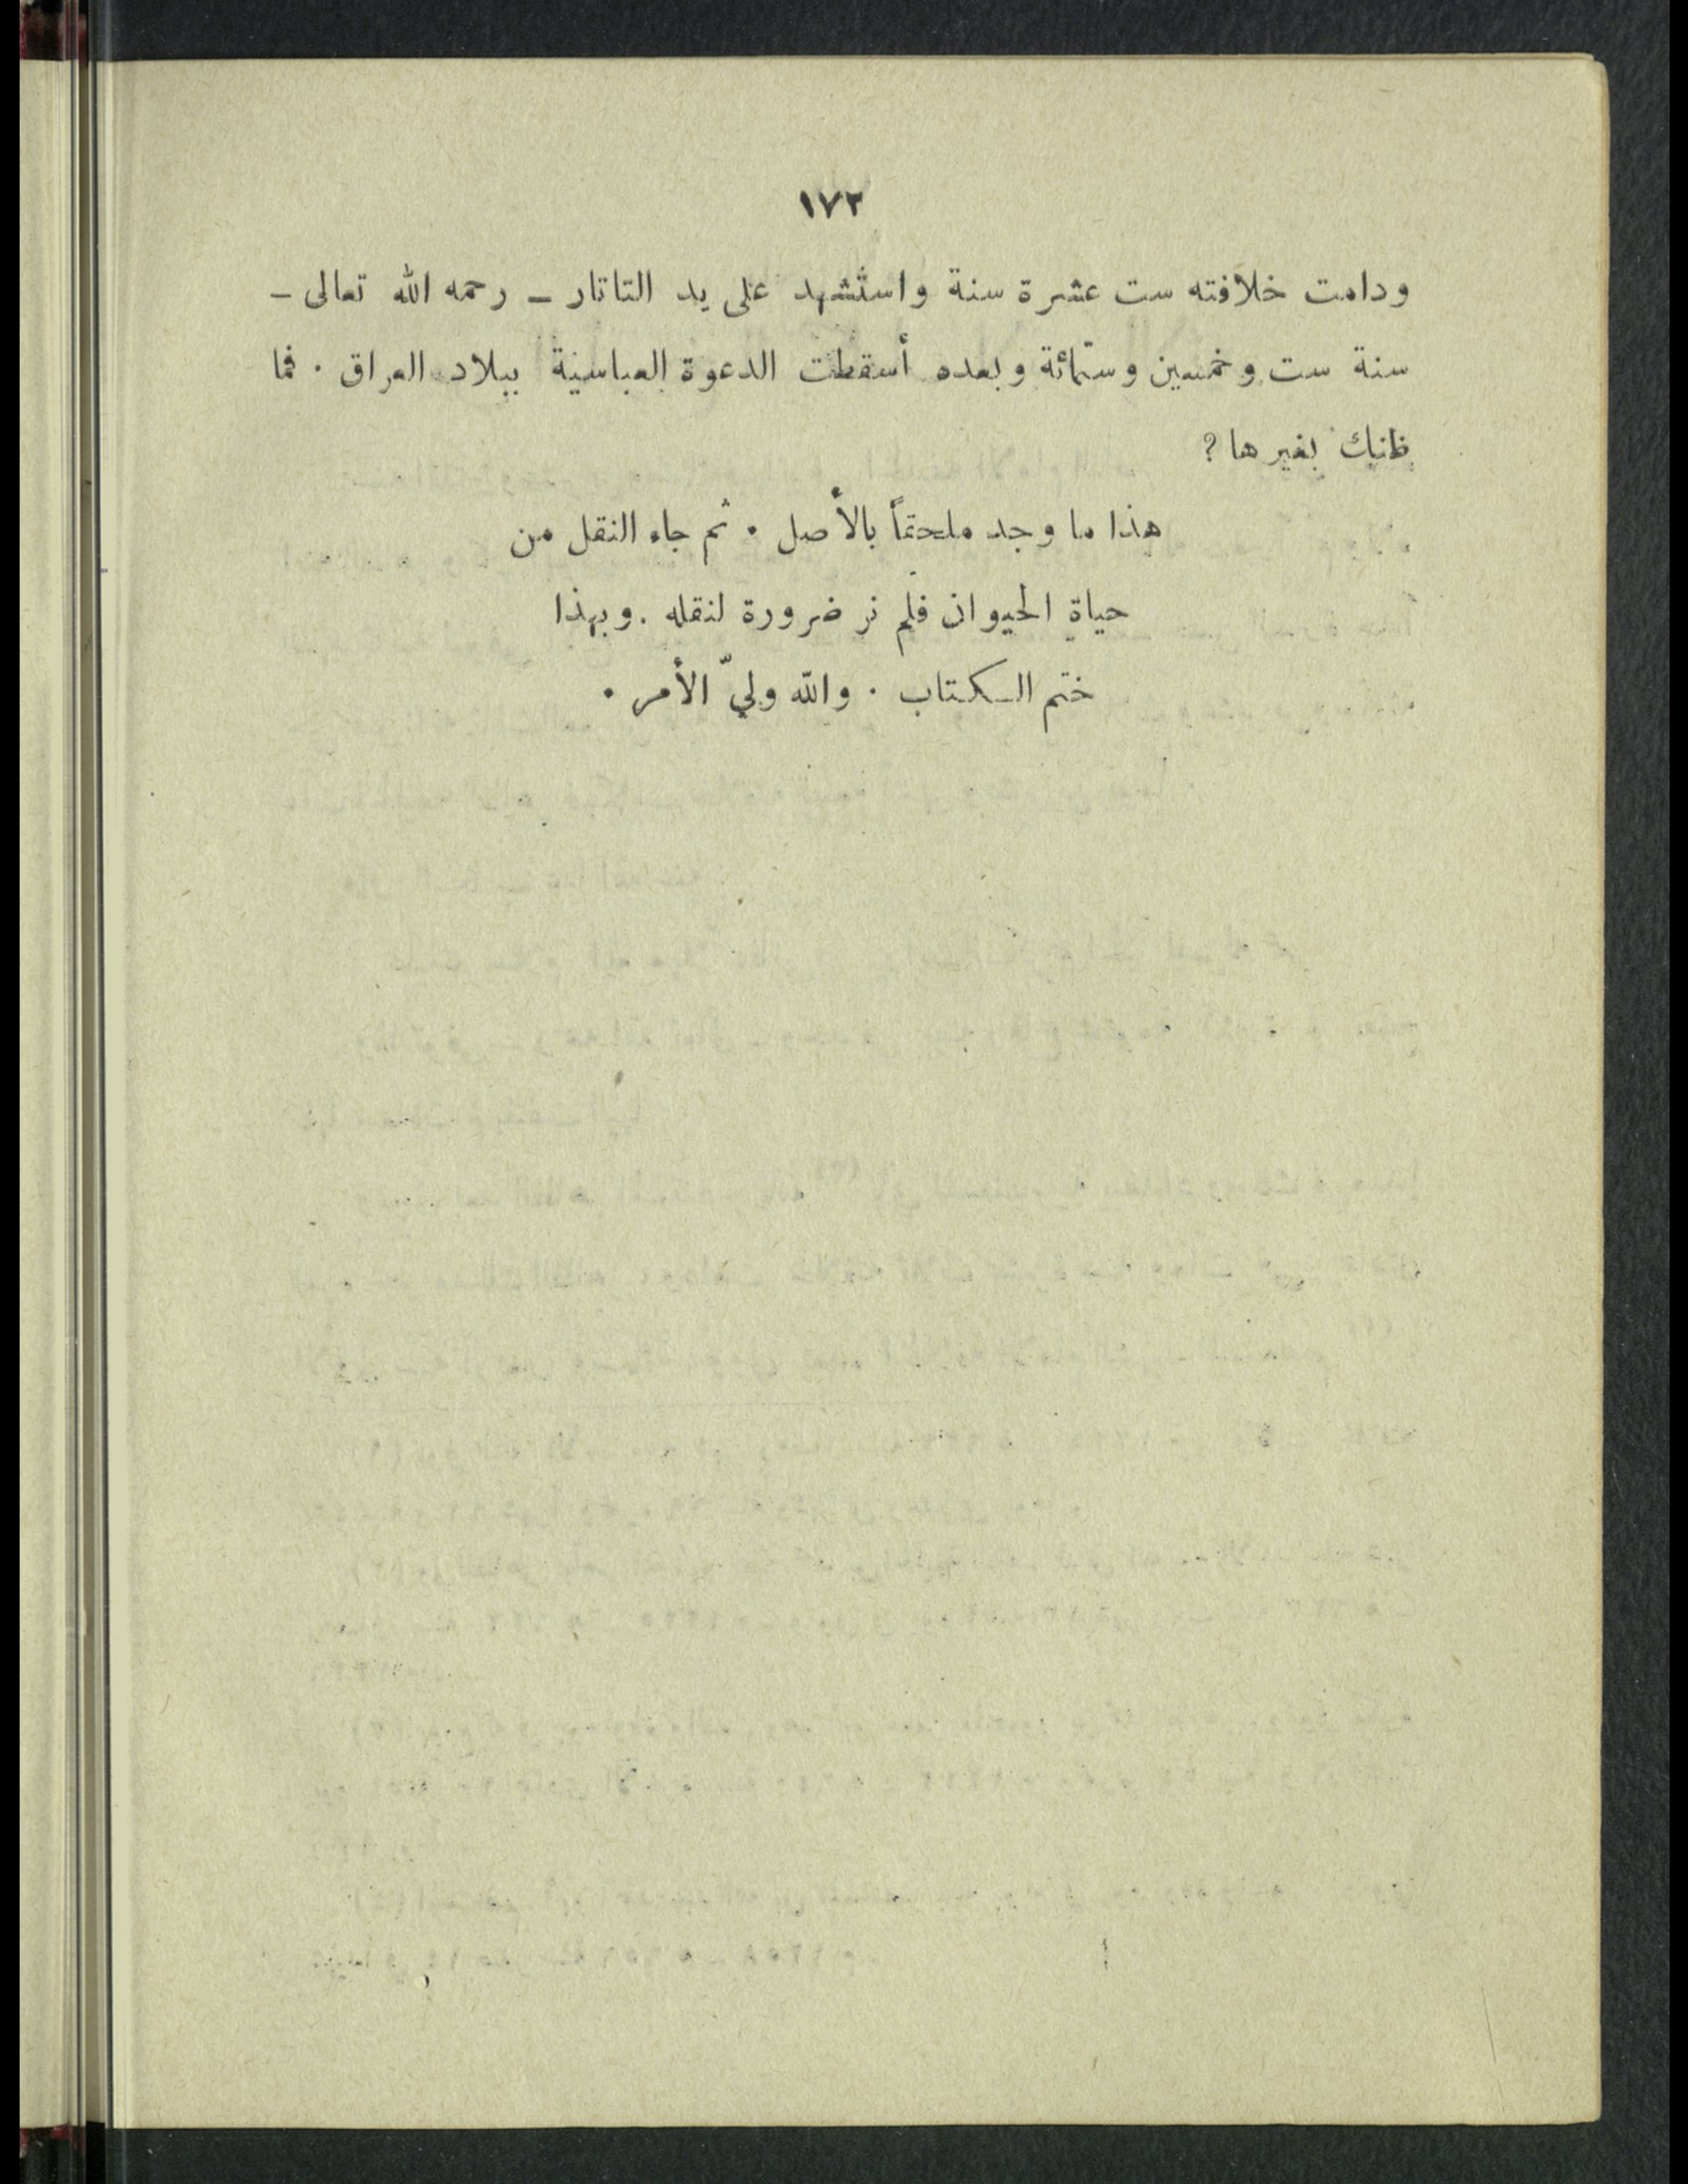 ١٧٢
ودامت خلافته ست عشرة سنة واستُشهد على يد التاتار – رحمه الله تعالى –
سنة ست وخمسين وستمائة وبعده أسقطت الدعوة العباسية ببلاد العراق . فما
ظنك بغيرها ؟
هذا ما وجد ملحقاً بالأصل . ثم جاء النقل من
حياة الحيوان فلم نر ضرورة لنقله . وبهذا
ختم الكتاب . والله وليّ الأمر .